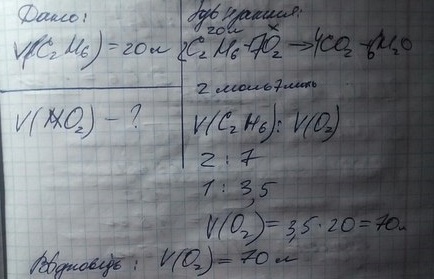 Дано:
V(C₂H₆) = 20 л
V(O₂) - ?
Розв'язання:
20л x
2C₂H₆ + 7O₂ → 4CO₂ + 6H₂O
2 моль 7 моль
V(C₂H₆) : V(O₂)
2 : 7
1 : 3,5
V(O₂) = 3,5 · 20 = 70 л
Відповідь : V(O₂) = 70 л